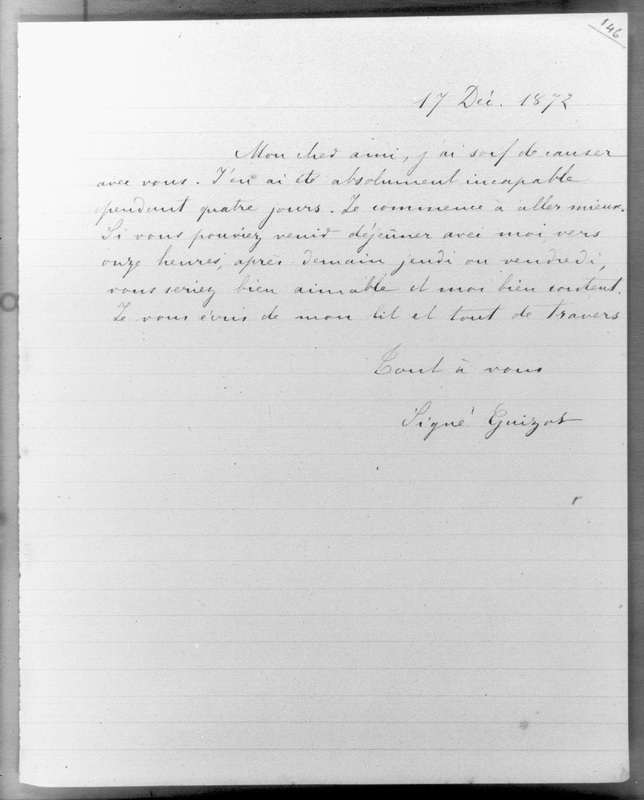 146
17 Déc. 1872
Mon cher ami, j'ai soif de causer
avec vous. J'en ai été absolument incapable
pendant quatre jours. Je commence à aller mieux.
Si vous pouviez venir déjeûner avec moi vers
onze heures, après demain jeudi ou vendredi,
vous seriez bien aimable et moi bien content.
Je vous écris de mon lit et tout de travers
Tout à vous
Signé Guizot